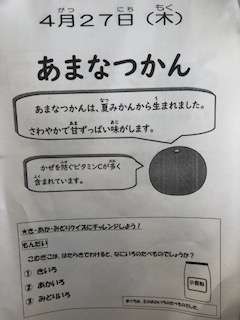 4月27日（木）
あまなつかん
あまなつかんは、夏みかんから生まれました。
さわやかで甘ずっぱい味がします。
かぜを防ぐビタミンCが多く
含まれています。
★き・あか・みどりクイズにチャレンジしよう！
もんだい
こむぎこは、はたらきでわけると、なにいろのたべものでしょうか？
① きいろ
② あかいろ
③ みどりいろ
小麦粉